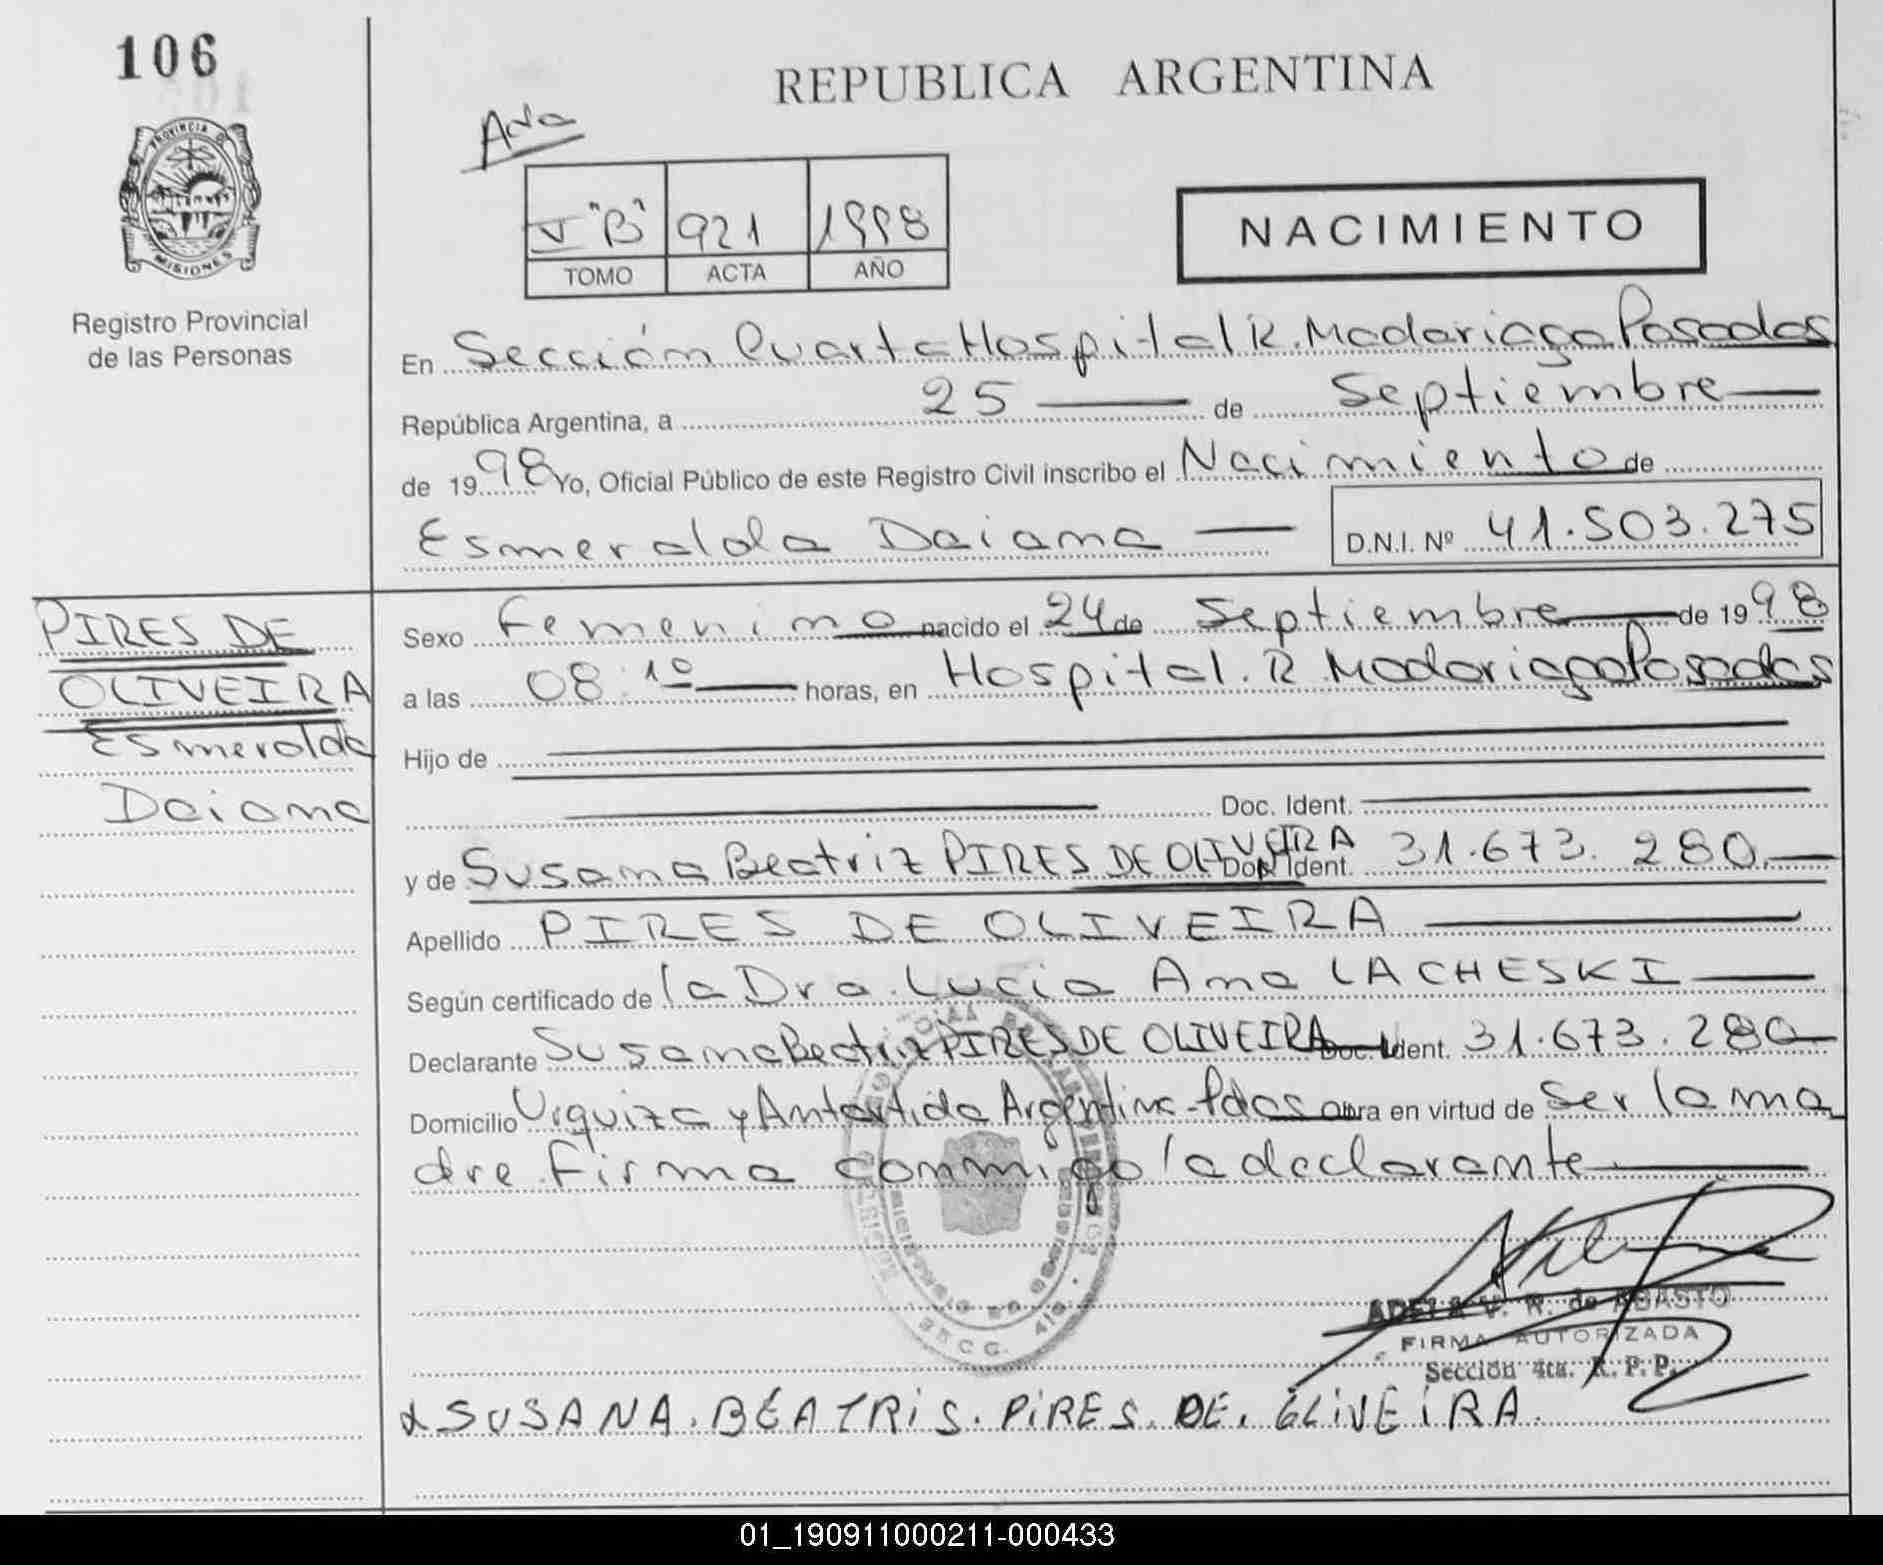 106
REPUBLICA ARGENTINA
PROVINCIA DE
MISIONES
"B" 921 1998
TOMO ACTA AÑO
NACIMIENTO
Registro Provincial
de las Personas
En Sección Cuarta Hospital R. Madariaga Posadas
República Argentina, a 25 de Septiembre
de 1998 Yo, Oficial Público de este Registro Civil inscribo el Nacimiento de
Esmeralda Daiana D.N.I. Nº 41.503.275
PIRES DE
OLIVEIRA
Esmeralda
Daiana
Sexo Femenino nacido el 24 de Septiembre de 1998
a las 08:10 horas, en Hospital. R. Madariaga Posadas
Hijo de
Doc. Ident.
y de Susana Beatriz PIRES DE OLIVEIRA Doc. Ident. 31.673.280
Apellido PIRES DE OLIVEIRA
Según certificado de la Dra. Lucia Ana LACHESKI
Declarante Susana Beatriz PIRES DE OLIVEIRA Doc. Ident. 31.673.280
Domicilio Urquiza y Antartida Argentina-Pdas obra en virtud de ser la ma
dre. Firma conmigo la declarante
ADELA V. R. de ABASTO
FIRMA AUTORIZADA
Sección 4ta. R. P. P.
SUSANA. BEATRIS. PIRES. DE. OLIVEIRA.
01_190911000211-000433